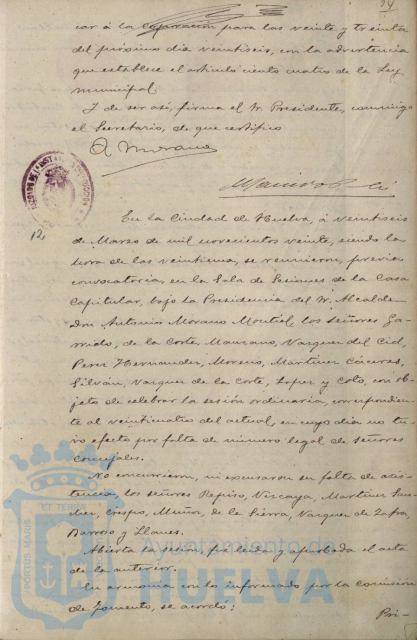 34
car á la Corporación para las veinte y treinta
del próximo dia veintiseis, con la advertencia
que establece el artículo ciento cuatro de la Ley
municipal.
Y de ser asi, firma el Sr. Presidente, conmigo
el Secretario, de que certifico
A Morano
12,
En la Ciudad de Huelva, á veintiseis
de Marzo de mil novecientos veinte, siendo la
hora de las veintiuna, se reunieron, previa
convocatoria, en la Sala de Sesiones de la Casa
Capitular, bajo la Presidencia del Sr. Alcalde
Don Antonio Morano Montiel, los señores Ga-
rrido, de la Corte Manzano, Vazquez del Cid,
Perez Hernandez, Moreno, Martinez Cáceres,
Silván, Vazquez de la Corte, Lopez y Coto, con ob-
jeto de celebrar la sesión ordinaria, correspondien-
te al veinticuatro del actual, en cuyo dia no tu-
vo efecto por falta de número legal de señores
concejales.
No concurrieron, ni excusaron su falta de asis-
tencia, los señores Repiso, Vizcaya, Martinez San-
chez, Crespo, Muñoz, de la Sierra, Vazquez de Zafra,
Barroso y Llanes.
Abierta la sesión, fué leida y aprobada el acta
de la anterior.
En armonia con lo informado por la Comisión
de Fomento, se acordo:
Pri-
PORTUS MARIS ET TERRAE
Ayuntamiento de
HUELVA